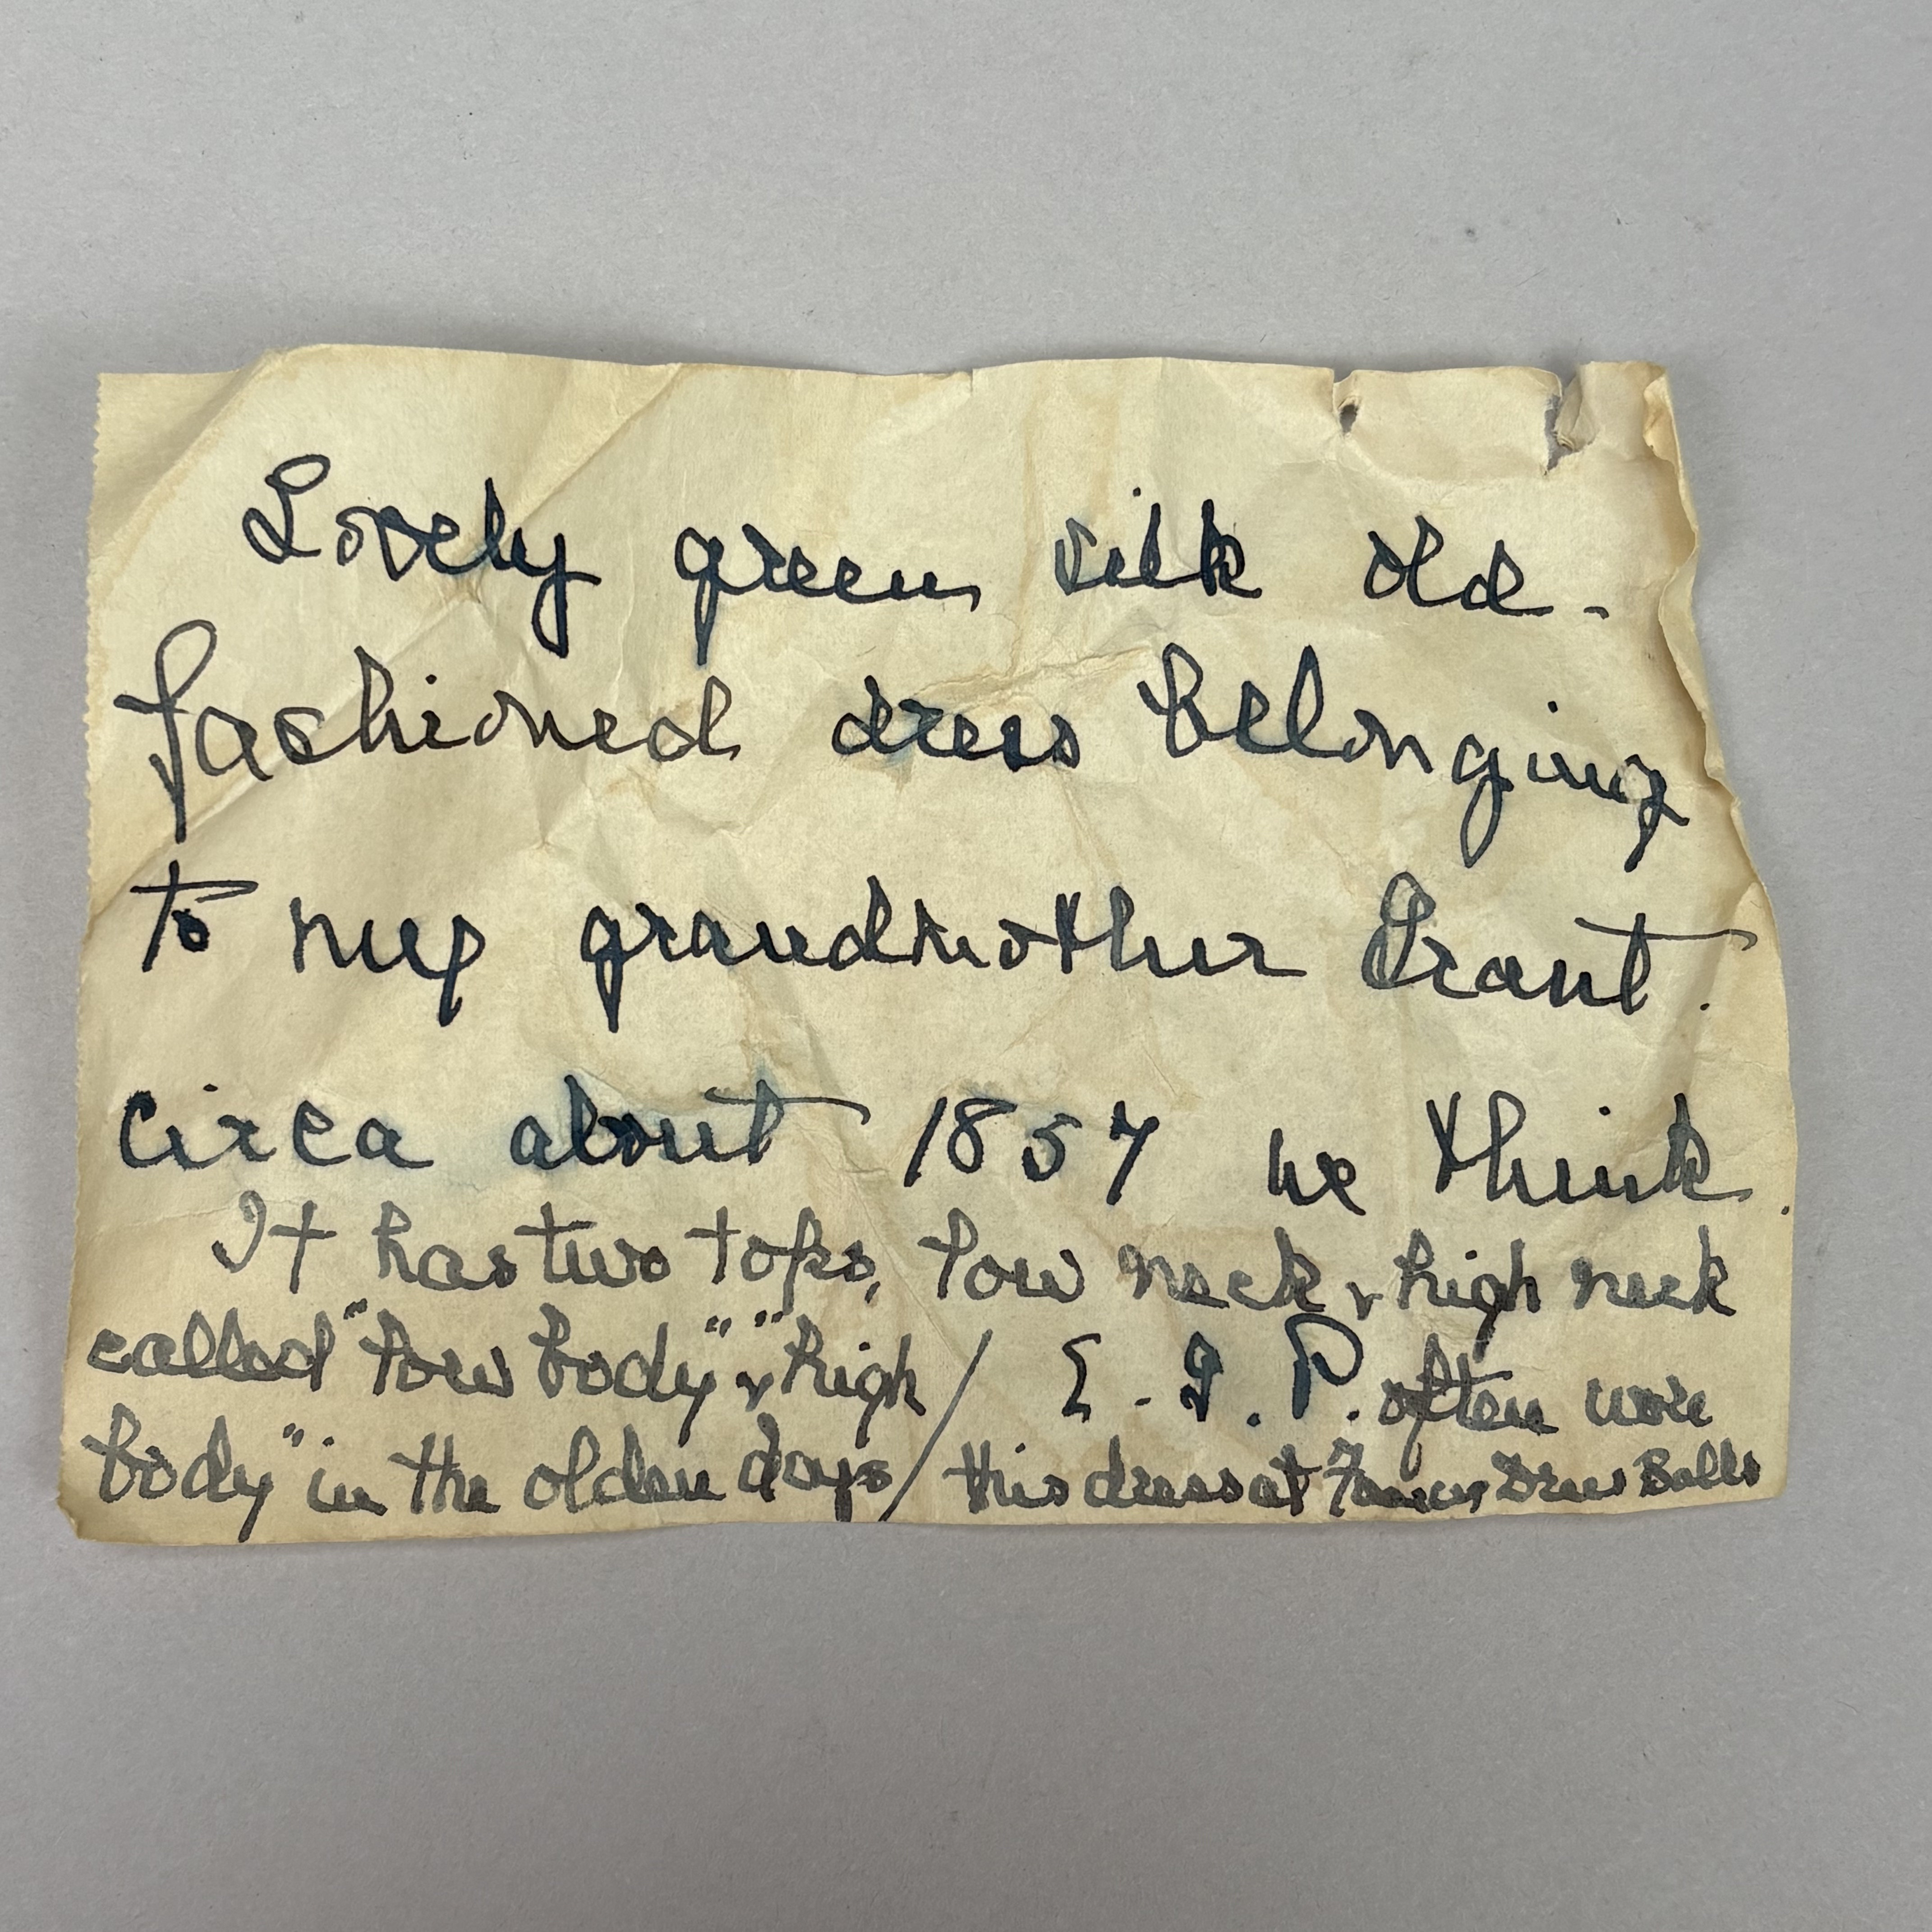 Lovely green silk old-
fashioned dress belonging
to my grandmother Grant.
Circa about 1857 we think.
It has two tops, low neck & high neck
called "low body" & "high / E. G. P. often wore
body" in the olden days / this dress at Fancy Dress Balls